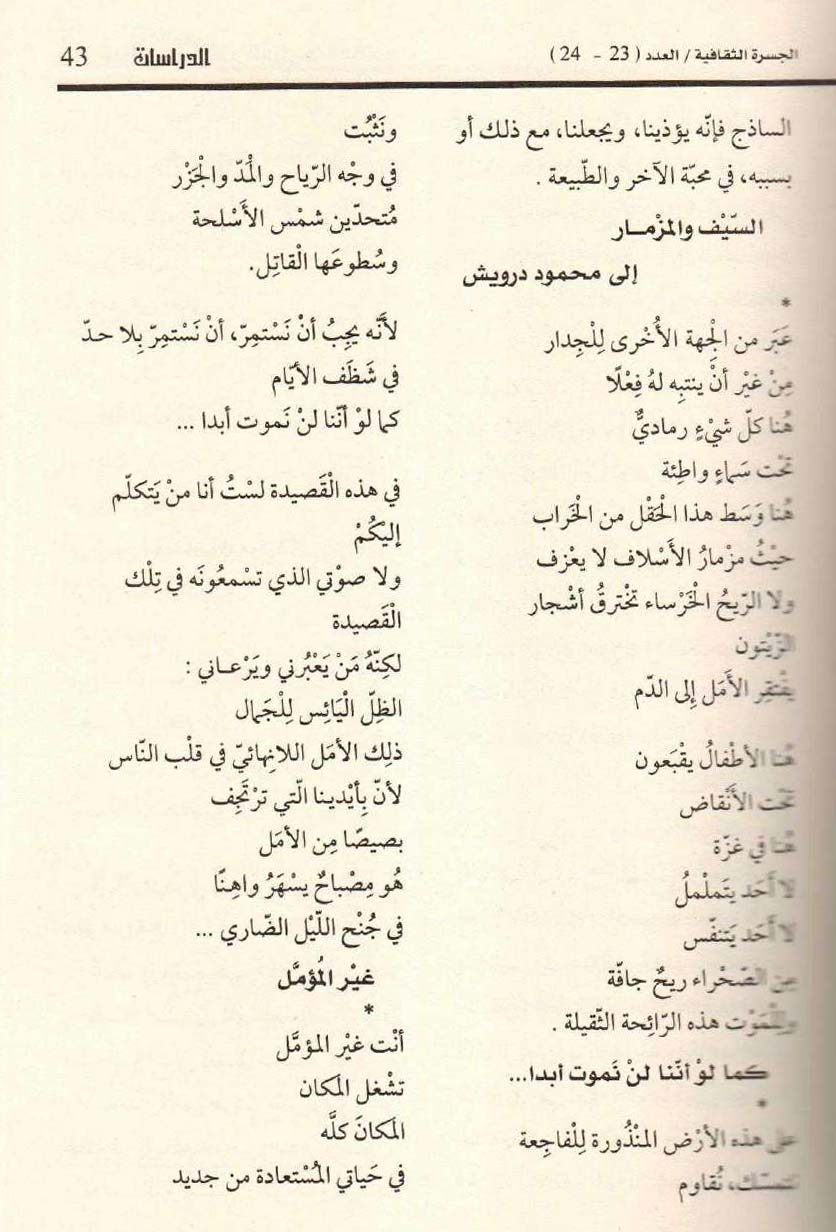 الجسرة الثقافية / العدد ( 23 - 24 )
الدراسات
43
الساذج فإنّه يؤذينا، ويجعلنا، مع ذلك أو
بسببه، في محبّة الآخر والطّبيعة .
السّيْف والمزْمـار
إلى محمود درويش
*
عَبَر من الْجِهة الأُخْرى لِلْجِدار
مِنْ غيْر أنْ ينتبِه لهُ فِعْلًا
هُنا كلّ شيْءٍ رماديٌّ
تحْت سَماءٍ واطِئة
هُنا وَسَط هذا الْحَقْل من الْخَراب
حيْثُ مزْمارُ الأَسْلاف لا يعْزف
ولا الرّيحُ الْخَرْساء تخْترقُ أشْجار
الزّيْتون
يفْتقِر الأَمَل إلى الدّم
هُنا الأطْفالُ يقْبَعون
تحْت الأَنْقاض
هُنا في غزّة
لا أَحَد يتَملْملُ
لا أَحَد يَتنفّس
مِن الصّحْراء ريحٌ جافّة
وللْمَوْت هذه الرّائحة الثّقيلة .
كما لوْ أنّنا لنْ نَموت أبدا...
*
على هذه الأرْض المنْذُورة لِلْفاجِعة
نتمسّك، نُقاوم
ونَثْبُت
في وجْه الرّياح والْمَدّ والْجَزْر
مُتحدّين شمْس الأَسْلحة
وسُطوعَها الْقاتِل.
لأنَّه يجِبُ أنْ نَسْتمِرّ، أنْ نَسْتمِرّ بِلا حدّ
في شَظَف الأيّام
كما لوْ أنّنا لنْ نَموت أبدا ...
في هذه الْقَصيدة لسْتُ أنا منْ يَتكلّم
إليكُمْ
ولا صوْتي الذي تسْمعُونَه في تِلْك
الْقَصيدة
لكِنّهُ مَنْ يَعْبُرني ويَرْعـاني :
الظِلّ الْيَائِس لِلْجَمال
ذلِك الأمَل اللانِهائيّ في قلْب النّاس
لأنّ بِأيْدينا الّتي ترْتَجِف
بصيصًا مِن الأمَل
هُو مِصْباحٌ يسْهَرُ واهِنًا
في جُنْح اللّيْل الضّاري ...
غيْر الْمُؤمَّل
*
أنْت غيْر المؤمَّل
تشْغل المكان
المكانَ كلَّه
في حَياتي الْمُسْتعادة من جديد